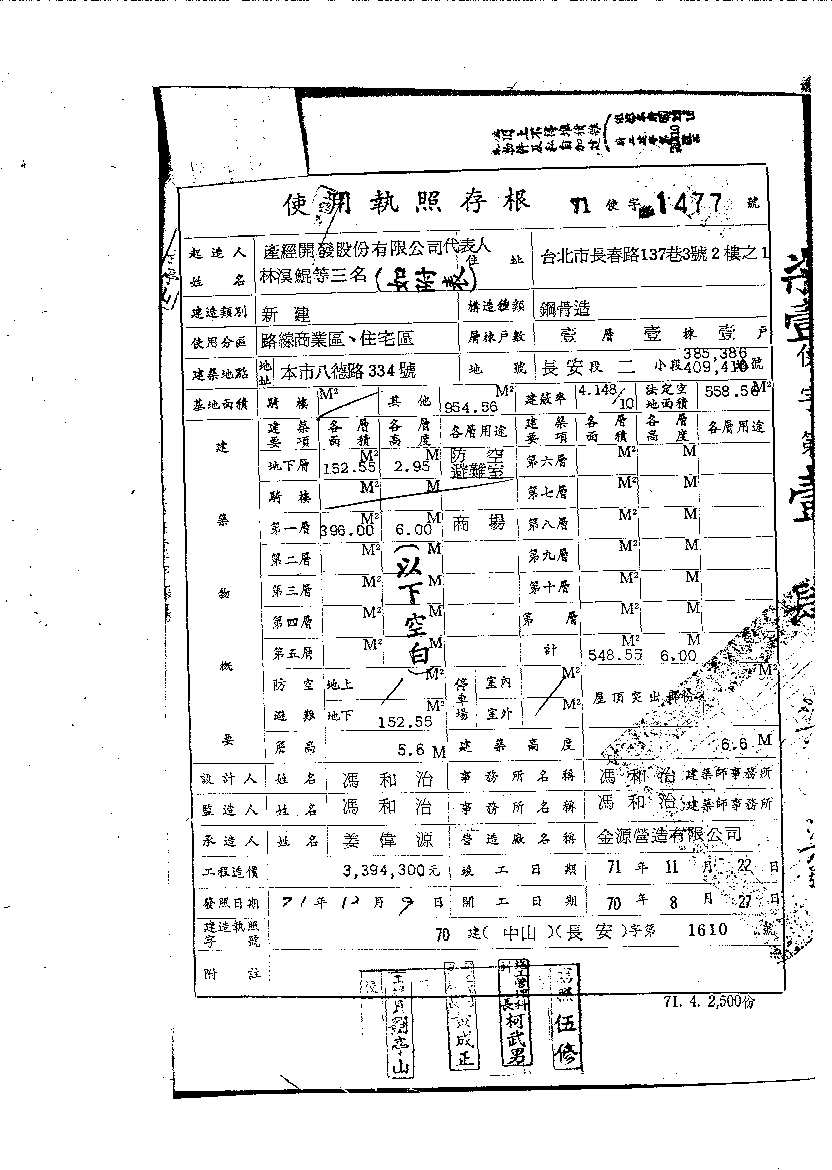 使用執照存根 71 使字 1477 號
起造人姓名 產經開發股份有限公司代表人 住址 台北市長春路137巷3號2樓之1
林溟鯤等三名(如附表)
建造類別 新建 構造種類 鋼骨造
使用分區 路線商業區、住宅區 層棟戶數 壹層壹棟壹戶
建築地點 地址 本市八德路334號 地號 長安段二小段 385,386
409,410號
基地面積 騎樓 M² 其他 954.56 M² 建蔽率 4.148/10 法定空地面積 558.56 M²
建築物概要 建築要項 各層面積 各層高度 各層用途 建築要項 各層面積 各層高度 各層用途
地下層 152.55 M² 2.95 M 防空避難室 第六層 M² M
騎樓 M² M 第七層 M² M
第一層 396.00 M² 6.00 M 商場 第八層 M² M
第二層 M² M 第九層 M² M
第三層 M² M 第十層 M² M
第四層 M² M 第 層 M² M
第五層 M² M 計 548.55 M² 6.00 M
(以下空白)
防空避難 地上 M² 停車場 室內 M² 屋頂突出部份 M²
地下 152.55 M² 室外
簷高 5.6 M 建築高度 6.6 M
設計人 姓名 馮和治 事務所名稱 馮和治建築師事務所
監造人 姓名 馮和治 事務所名稱 馮和治建築師事務所
承造人 姓名 姜偉源 營造廠名稱 金源營造有限公司
工程造價 3,394,300元 竣工日期 71年11月22日
發照日期 71年12月9日 開工日期 70年8月27日
建造執照字號 70建(中山)(長安)字第 1610 號
附註
71. 4. 2,500份
科長柯武男
伍修